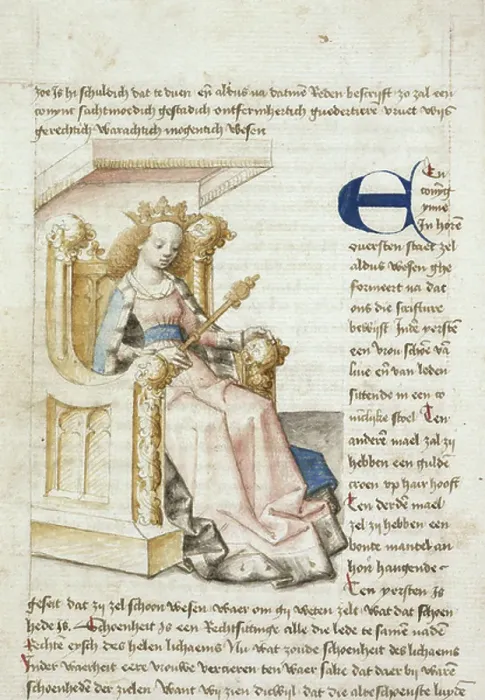 zoe is hi schuldich dat te duen eñ aldus na datmē Reden bescrijft zo zal een
conync sachtmoedich gestadich ontfermhertich guedertiere vruet wijs
gerechtich warachtich mogentich wesen
En
conyg
ynne
In horē
ouersten staet zel
aldus wesen ghe
formeert na dat
ons die scrifture
bewijst Inde yersте
een vrou schoē vā
live eñ van leden
sittende in een co
nīclijke stoel Ten
anderē mael zal zij
hebben een guldē
croen vp hair hooft
Ten derdē mael
zel zij hebben een
bonte mantel an
horē hangende
Ten yersten Is
geseit dat zij zel schoen wesen waer om gij weten zelt wat dat schoen
hede is. Schoenheit is een Rechtsittinge alle die lede te samē nadē
Rechtē eysch des helen lichaems Nu wat zoude schoenheit des lichaems
Inder waerheit eere vrouwe vercieren ten waer sake dat daer bij waren
schoenhedē der zielen want wij zien dicwijl dat die alreschoenste